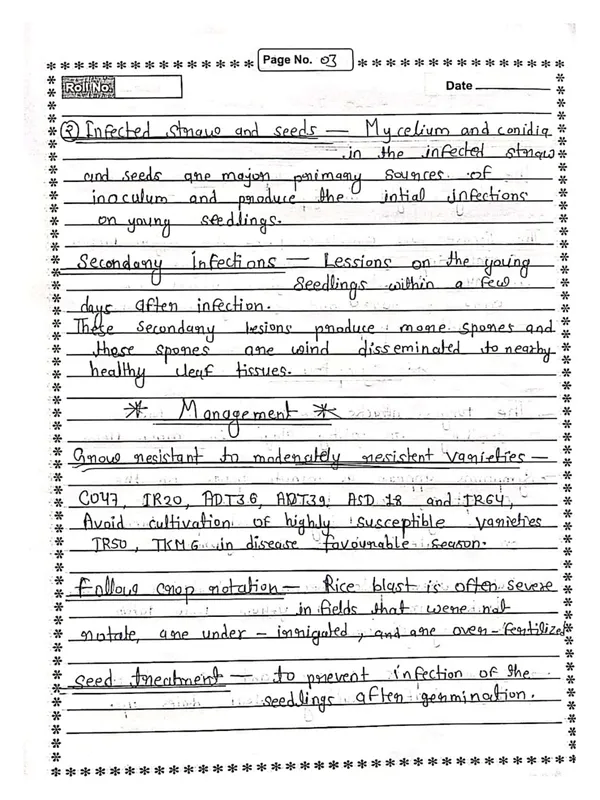 Page No. 03
Roll No.
Date
② Infected straw and seeds — Mycelium and conidia
in the infected straw
and seeds are major primary sources of
inoculum and produce the intial infections
on young seedlings.
Secondary infections — Lessions on the young
Seedlings within a few
days after infection.
These secondary lesions produce more spores and
these spores are wind disseminated to nearby
healthy leaf tissues.
* Management *
Grow resistant to moderately resistent varieties —
CO47, IR20, ADT36, ADT39, ASD 18 and IR64,
Avoid cultivation of highly susceptible varieties
IR50, TKM6 in disease favourable season.
Follow crop rotation — Rice blast is often severe
in fields that were not
rotate, are under - irrigated, and are over-fertilized
Seed treatment — to prevent infection of the
seedlings after germination.